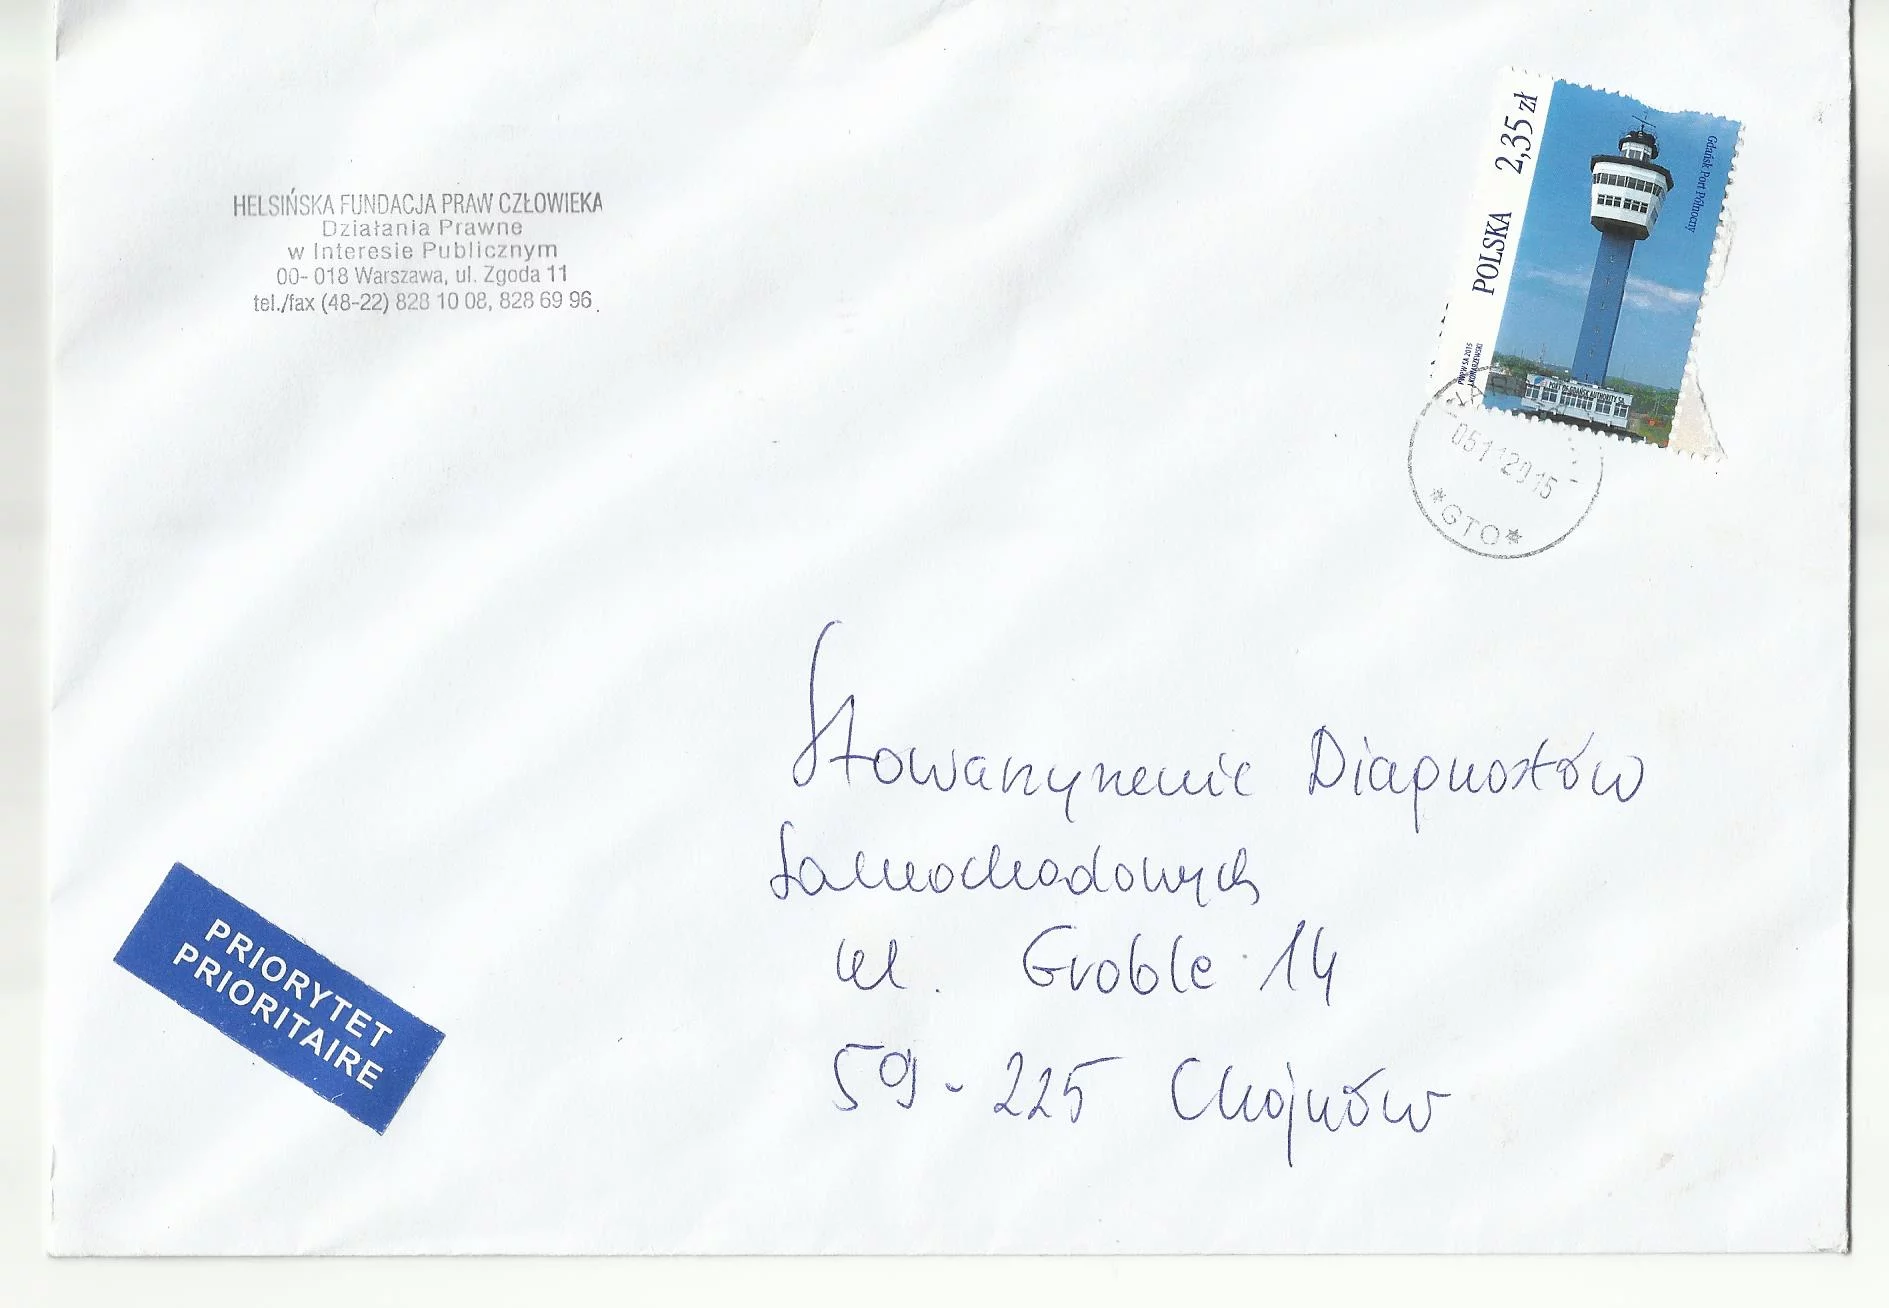 HELSIŃSKA FUNDACJA PRAW CZŁOWIEKA
Działania Prawne
w Interesie Publicznym
00-018 Warszawa, ul. Zgoda 11
tel./fax (48-22) 828 10 08, 828 69 96
POLSKA 2,35 zł
Gdańsk Port Północny
PWPW SA 2015
PORT OF GDAŃSK AUTHORITY SA
*GTO*
Stowarzyszenie Diagnostów
Samochodowych
ul. Groble 14
59-225 Chojnów
PRIORYTET
PRIORITAIRE